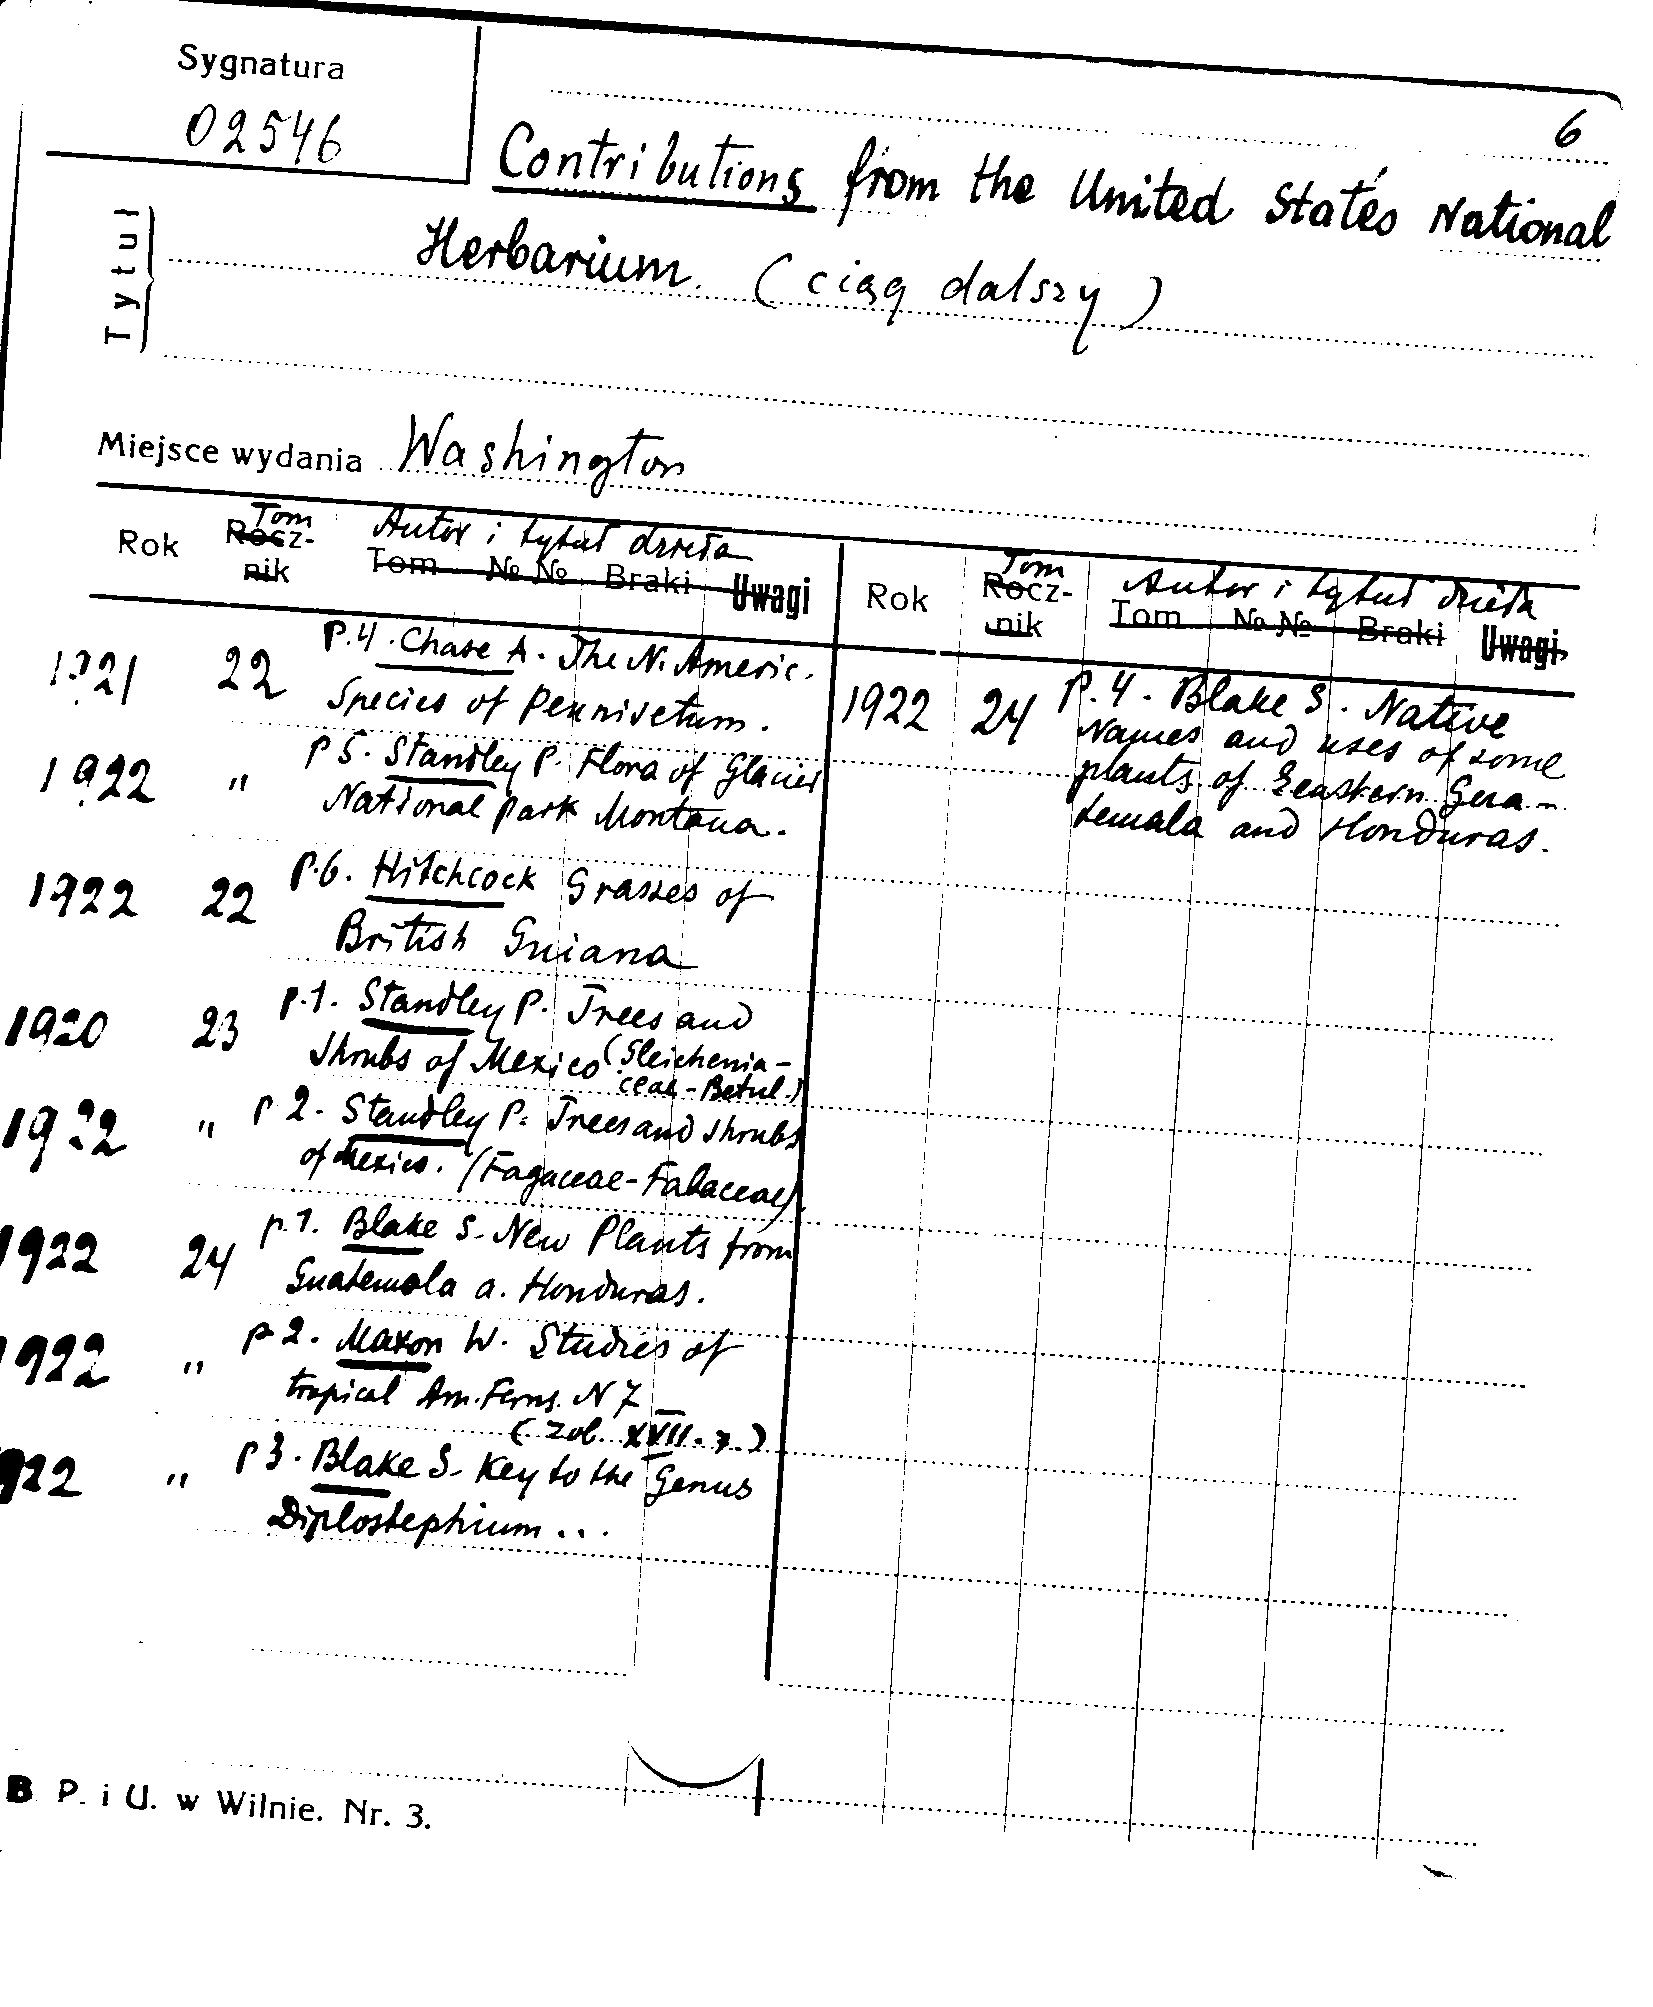 Sygnatura
02546
6
Contributions from the United States National
Herbarium. (ciąg dalszy)
Tytuł
Miejsce wydania Washington
Rok
Tom
Rocz-
nik
Autor i tytuł dzieła
Tom № № Braki Uwagi
Rok
Tom
Rocz-
nik
Autor i tytuł dzieła
Tom № № Braki Uwagi
1921 22 p.4. Chase A. The N. Americ.
Species of Pennisetum.
1922 " p 5. Standley P. Flora of Glacier
National park Montana.
1922 22 p.6. Hitchcock Grasses of
British Guiana
1920 23 p.1. Standley P. Trees and
Shrubs of Mexico (Gleichenia-
ceae - Betul.)
1922 " p 2. Standley P. Trees and shrubs
of Mexico. (Fagaceae - Fabaceae)
1922 24 p.1. Blake S. New Plants from
Guatemala a. Honduras.
1922 " p 2. Maxon W. Studies of
tropical Am. Ferns. N 7
(Zob. XVII. 7.)
922 " p 3. Blake S. Key to the Genus
Diplostephium...
1922 24 p.4. Blake S. Native
Names and uses of some
plants of Eeastern Gua-
temala and Honduras.
B P. i U. w Wilnie. Nr. 3.